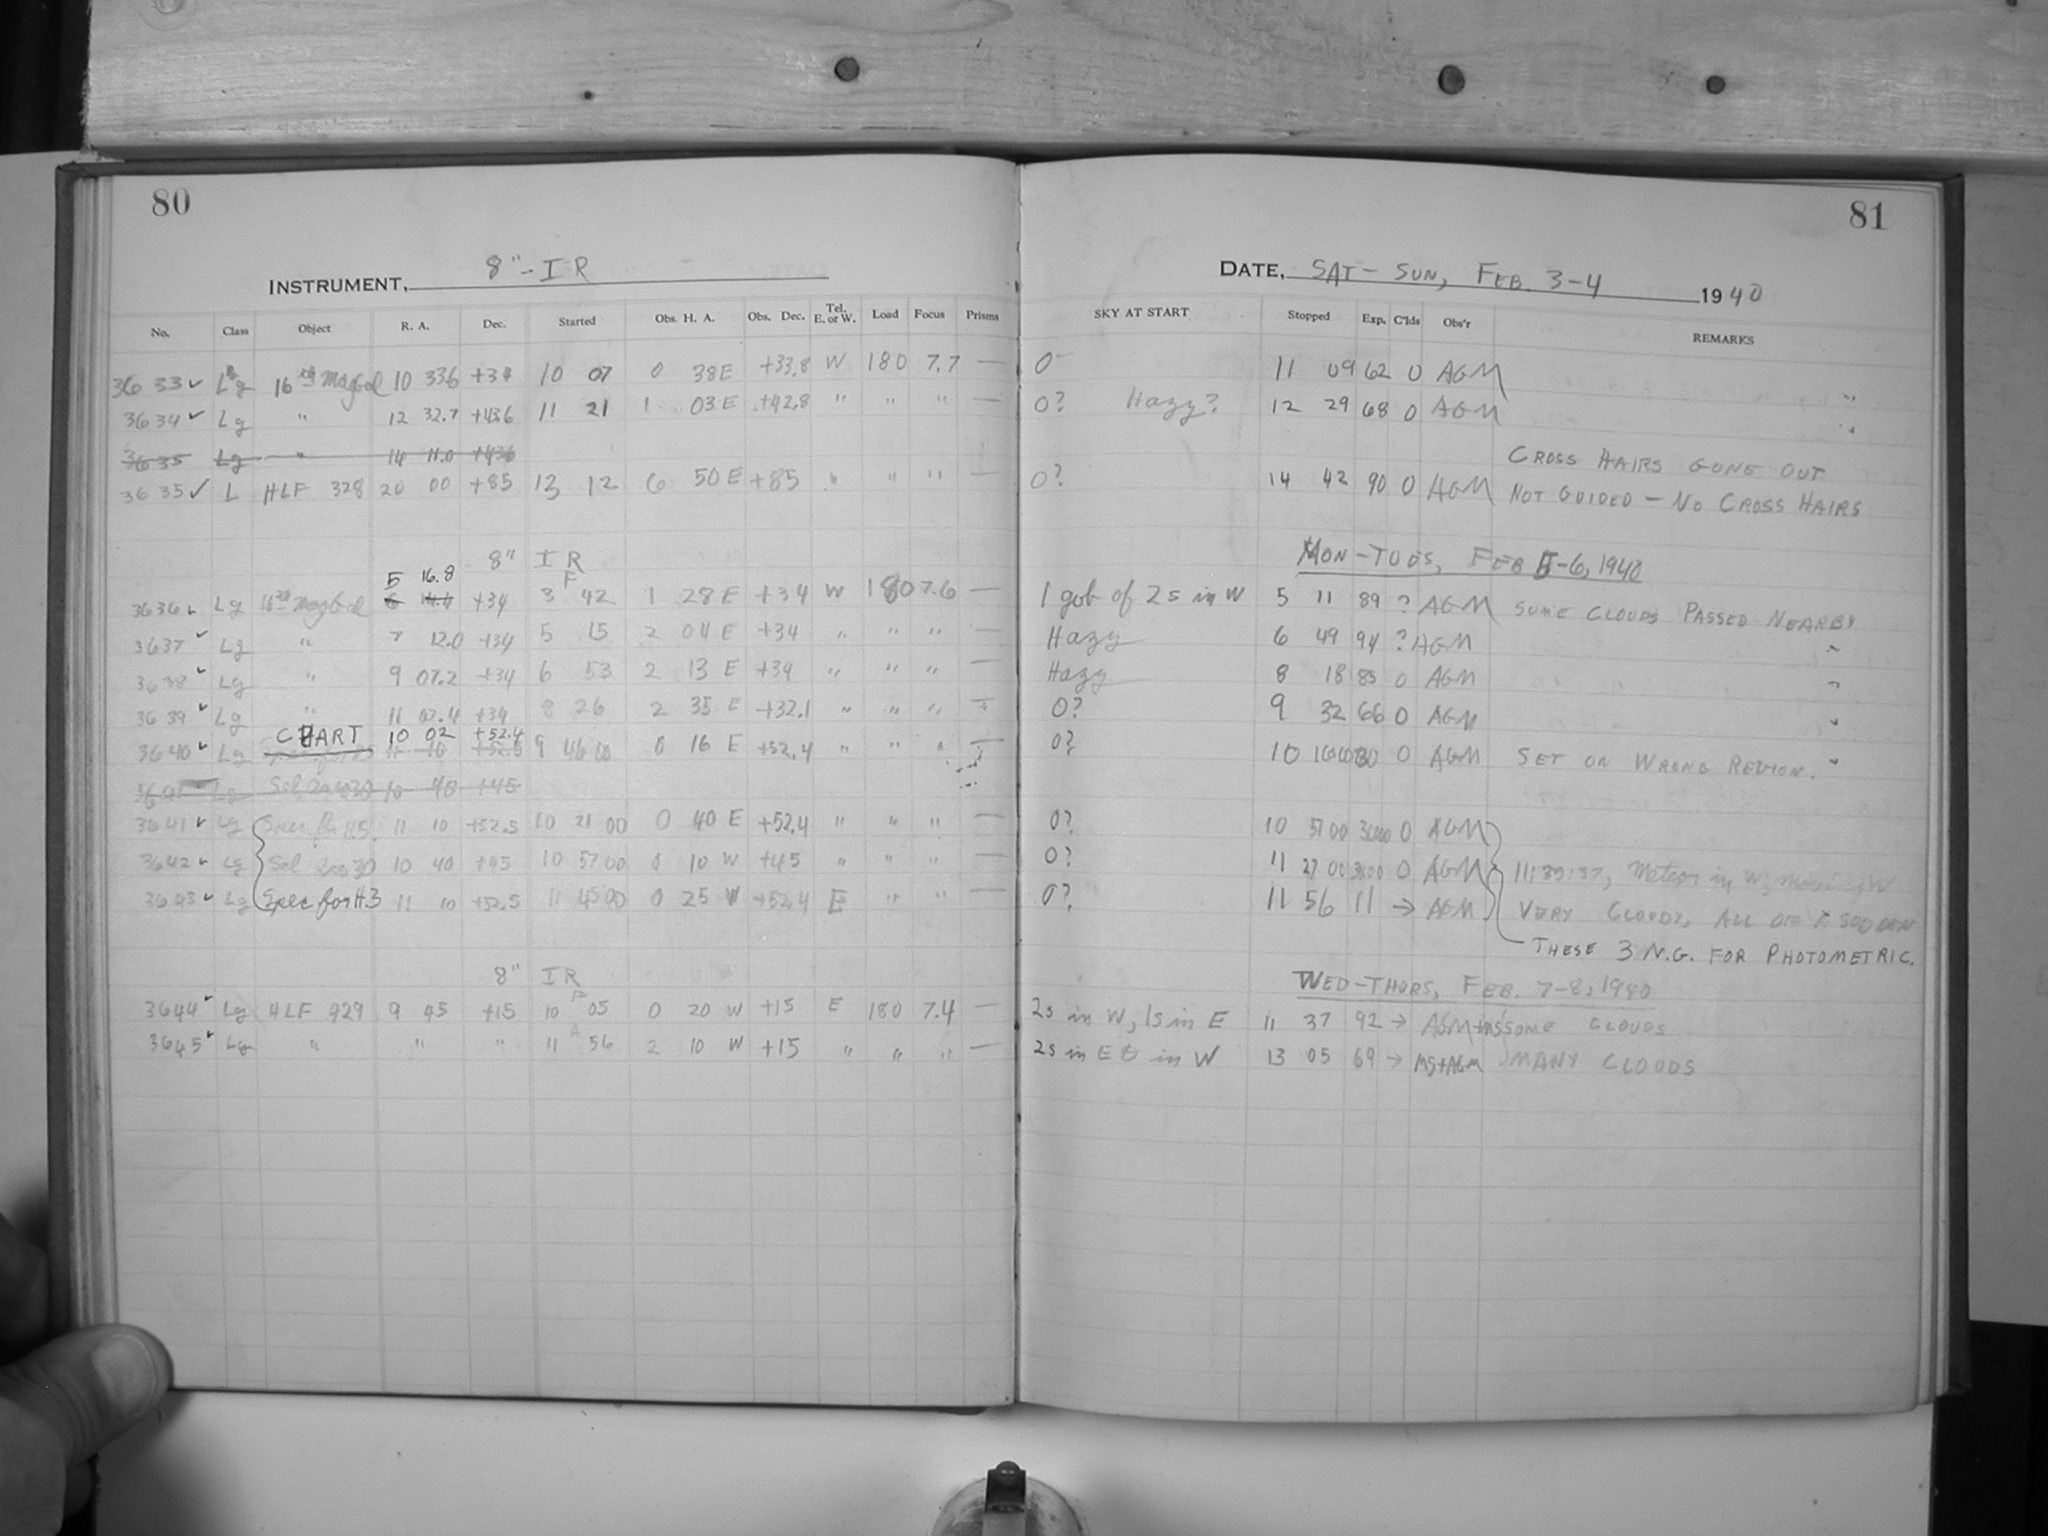 80
INSTRUMENT, 8"-IR
No. Class Object R. A. Dec. Started Obs. H. A. Obs. Dec. Tel. E. or W. Load Focus Prisms
3633 ✓ Lg 16th Mag Gal 10 33.6 +34 10 07 0 38 E +33.8 W 180 7.7 —
3634 ✓ Lg " 12 32.7 +43.6 11 21 1 03 E +42.8 " " " —
3635 Lg " 14 11.0 +43.6
3635 ✓ L HLF 328 20 00 +85 13 12 6 50 E +85 " " " —
8" IR
5 16.8
3636 ✓ Lg 16th Mag Gal +34 3 42 1 28 E +34 W 180 7.6 —
3637 ✓ Lg " 7 12.0 +34 5 15 2 04 E +34 " " " —
3638 ✓ Lg " 9 07.2 +34 6 53 2 13 E +34 " " " —
3639 ✓ Lg " 11 02.4 +34 8 26 2 35 E +32.1 " " "
CHART 10 02 +52.4
3640 ✓ Lg 11 10 +52.5 9 46 00 0 16 E +52.4 " " " —
3641 Lg Sel 10 40 +45
3641 ✓ Lg Spec for H.5 11 10 +52.5 10 21 00 0 40 E +52.4 " " " —
3642 ✓ Lg Sel 10 40 +45 10 57 00 0 10 W +45 " " " —
3643 ✓ Lg Spec for H.3 11 10 +52.5 11 45 00 0 25 W +52.4 E " " —
8" IR
3644 ✓ Lg HLF 929 9 45 +15 10 P 05 0 20 W +15 E 180 7.4 —
3645 ✓ Lg " " " 11 A 56 2 10 W +15 " " " —
81
DATE, SAT - SUN, FEB. 3-4 1940
SKY AT START Stopped Exp. C'lds Obs'r REMARKS
0 11 09 62 0 AGM "
0? Hazy? 12 29 68 0 AGM "
CROSS HAIRS GONE OUT
0? 14 42 90 0 AGM NOT GUIDED — NO CROSS HAIRS
MON-TUES, FEB 5-6, 1940
1 gob of 2s in W 5 11 89 ? AGM SOME CLOUDS PASSED NEARBY
Hazy 6 49 94 ? AGM "
Hazy 8 18 85 0 AGM "
0? 9 32 66 0 AGM "
0? 10 16 00 30 0 AGM SET ON WRONG REGION. "
0? 10 51 00 30 00 0 AGM
0? 11 27 00 30 00 0 AGM 11:39:37, Meteor in W, moving W
0? 11 56 11 → AGM VERY CLOUDY, ALL OF A SUDDEN
THESE 3 N.G. FOR PHOTOMETRIC.
WED-THURS, FEB. 7-8, 1940
2s in W, 1s in E 11 37 92 → AGM+MS SOME CLOUDS
2s in E & in W 13 05 69 → MS+AGM MANY CLOUDS